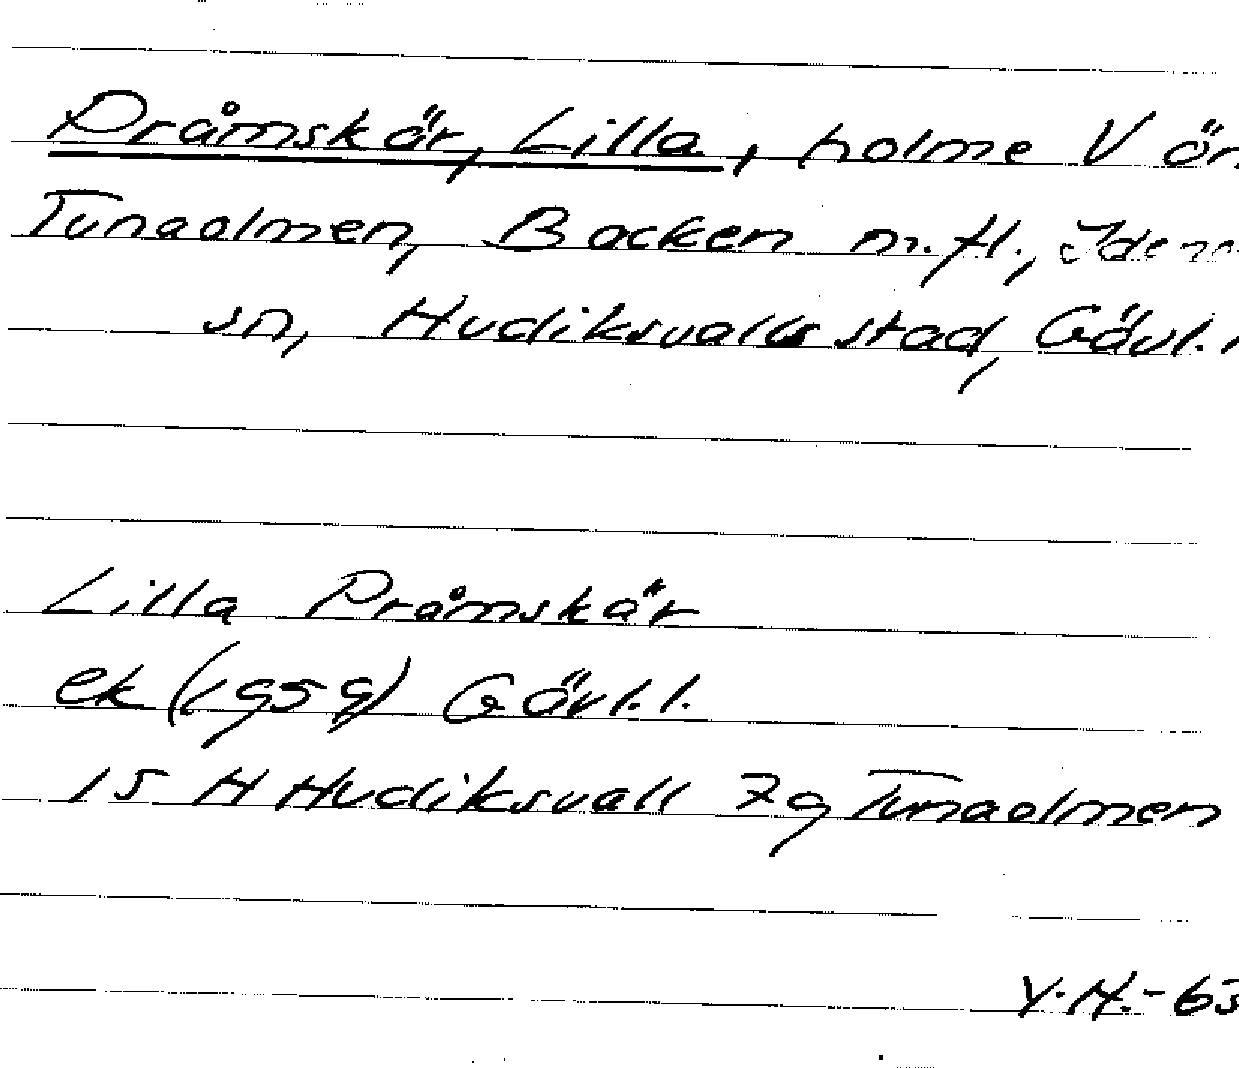 Pråmskär, Lilla, holme V ön
Tunaolmen, Backen m.fl., Idenor
sn, Hudiksvalls stad, Gävl. l
Lilla Pråmskär
ek (1959) Gävl. l.
15 H Hudiksvall 7g Tunaolmen
Y.H.-63